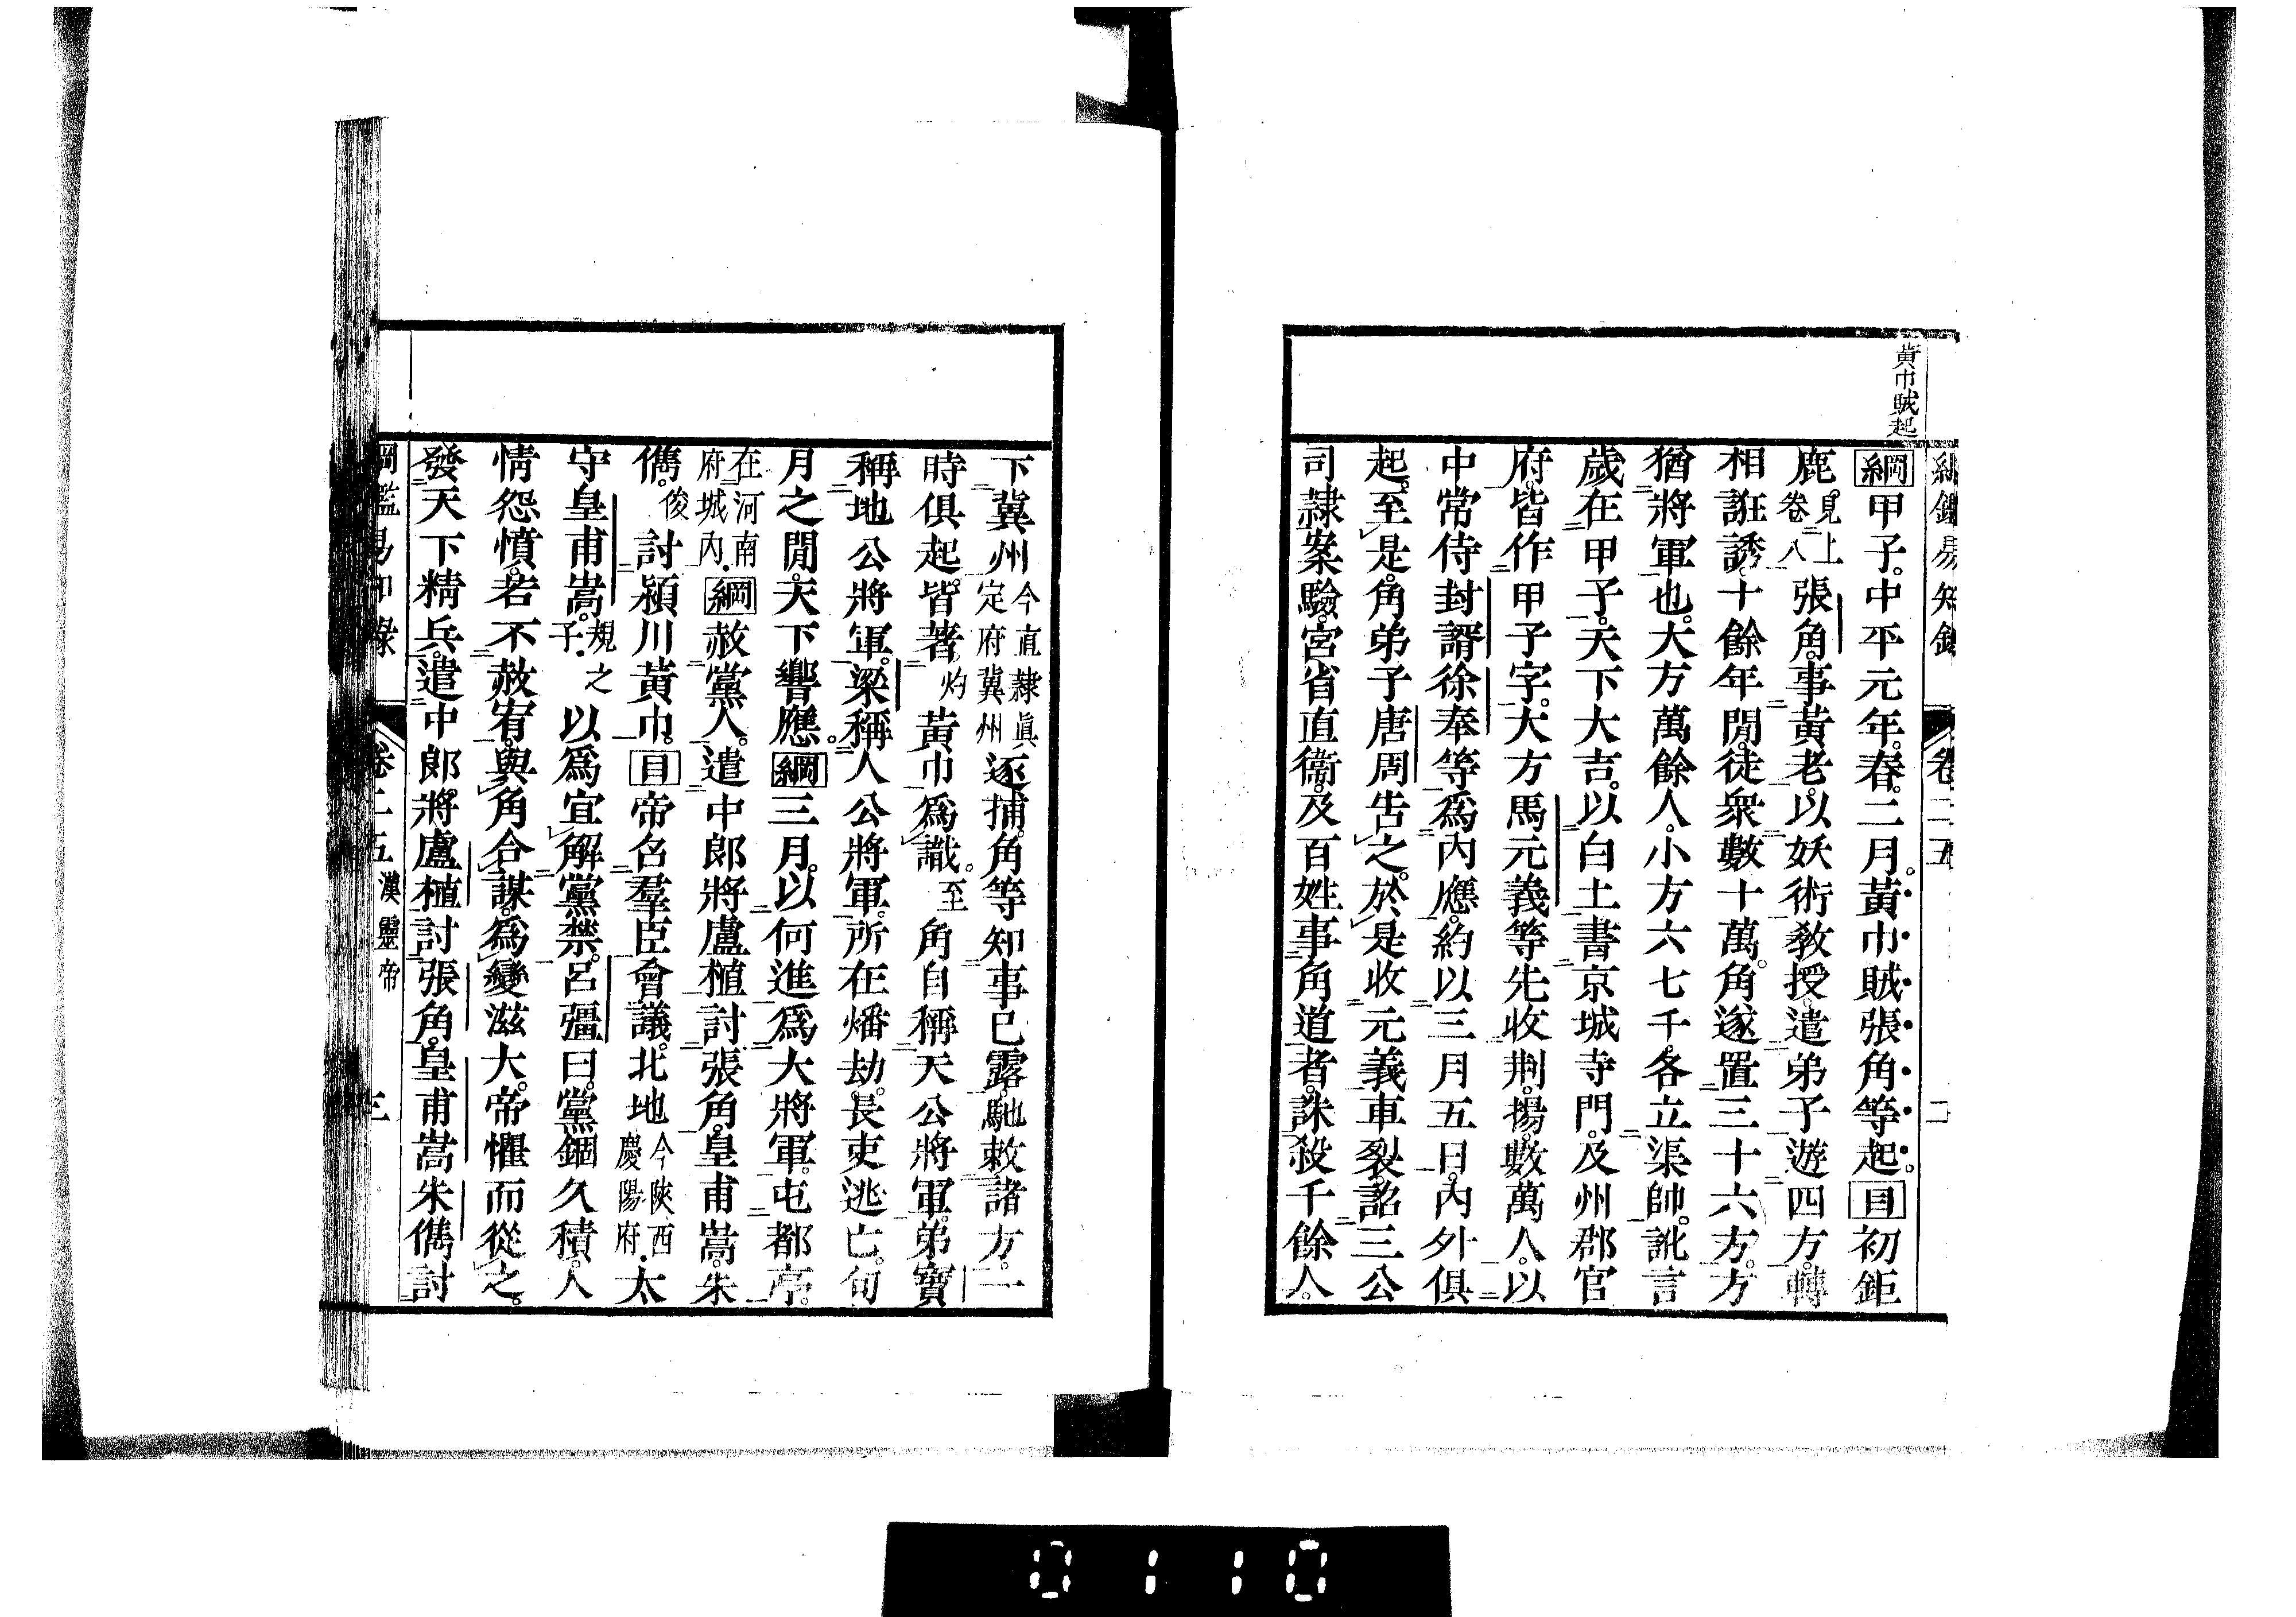 綱鑑易知録 卷二五 二
黄巾賊起
綱甲子。中平元年。春。二月。黄巾賊張角等起。目初鉅
鹿。見上卷八張角。事黄老。以妖術教授。遣弟子遊四方。轉
相誑誘。十餘年閒。徒衆數十萬。角遂置三十六方。方
猶將軍也。大方萬餘人。小方六七千。各立渠帥。訛言
歲在甲子。天下大吉。以白土書京城寺門。及州郡官
府。皆作甲子字。大方馬元義等先收荆。揚。數萬人。以
中常侍封諝徐奉等爲内應。約以三月五日。内外俱
起。至是。角弟子唐周告之。於是收元義車裂。詔三公
司隷案驗。宮省直衞。及百姓。事角道者。誅殺千餘人。
下冀州今直隷眞定府冀州逐捕。角等知事已露。馳敕諸方。一
時俱起。皆著灼黄巾爲識。至角自稱天公將軍。弟寶
稱地公將軍。梁稱人公將軍。所在燔劫。長吏逃亡。旬
月之閒。天下響應。綱三月。以何進爲大將軍。屯都亭。
在河南府城内。綱赦黨人。遣中郎將盧植討張角。皇甫嵩。朱
儁。俊討潁川黄巾。目帝召羣臣會議。北地今陜西慶陽府。太
守皇甫嵩。規之子。以爲宜解黨禁。呂彊曰。黨錮久積。人
情怨憤。若不赦宥。與角合謀。爲變滋大。帝懼而從之。
發天下精兵。遣中郎將盧植討張角。皇甫嵩朱儁討
綱鑑易知録 卷二五 漢靈帝 三
0110